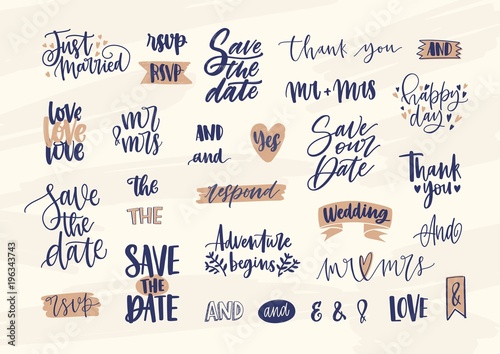 Just
Married
rsvp
RSVP
Save
the
date
thank you
AND
mr + mrs
happy
day
love
love
love
mr
& mrs
AND
and
Yes
Save
our
Date
Thank
you
Save
the
date
the
THE
respond
Wedding
And
SAVE
THE
DATE
Adventure
begins
mr mrs
rsvp
AND
and
& & &
LOVE
&
Adobe Stock | #196343743